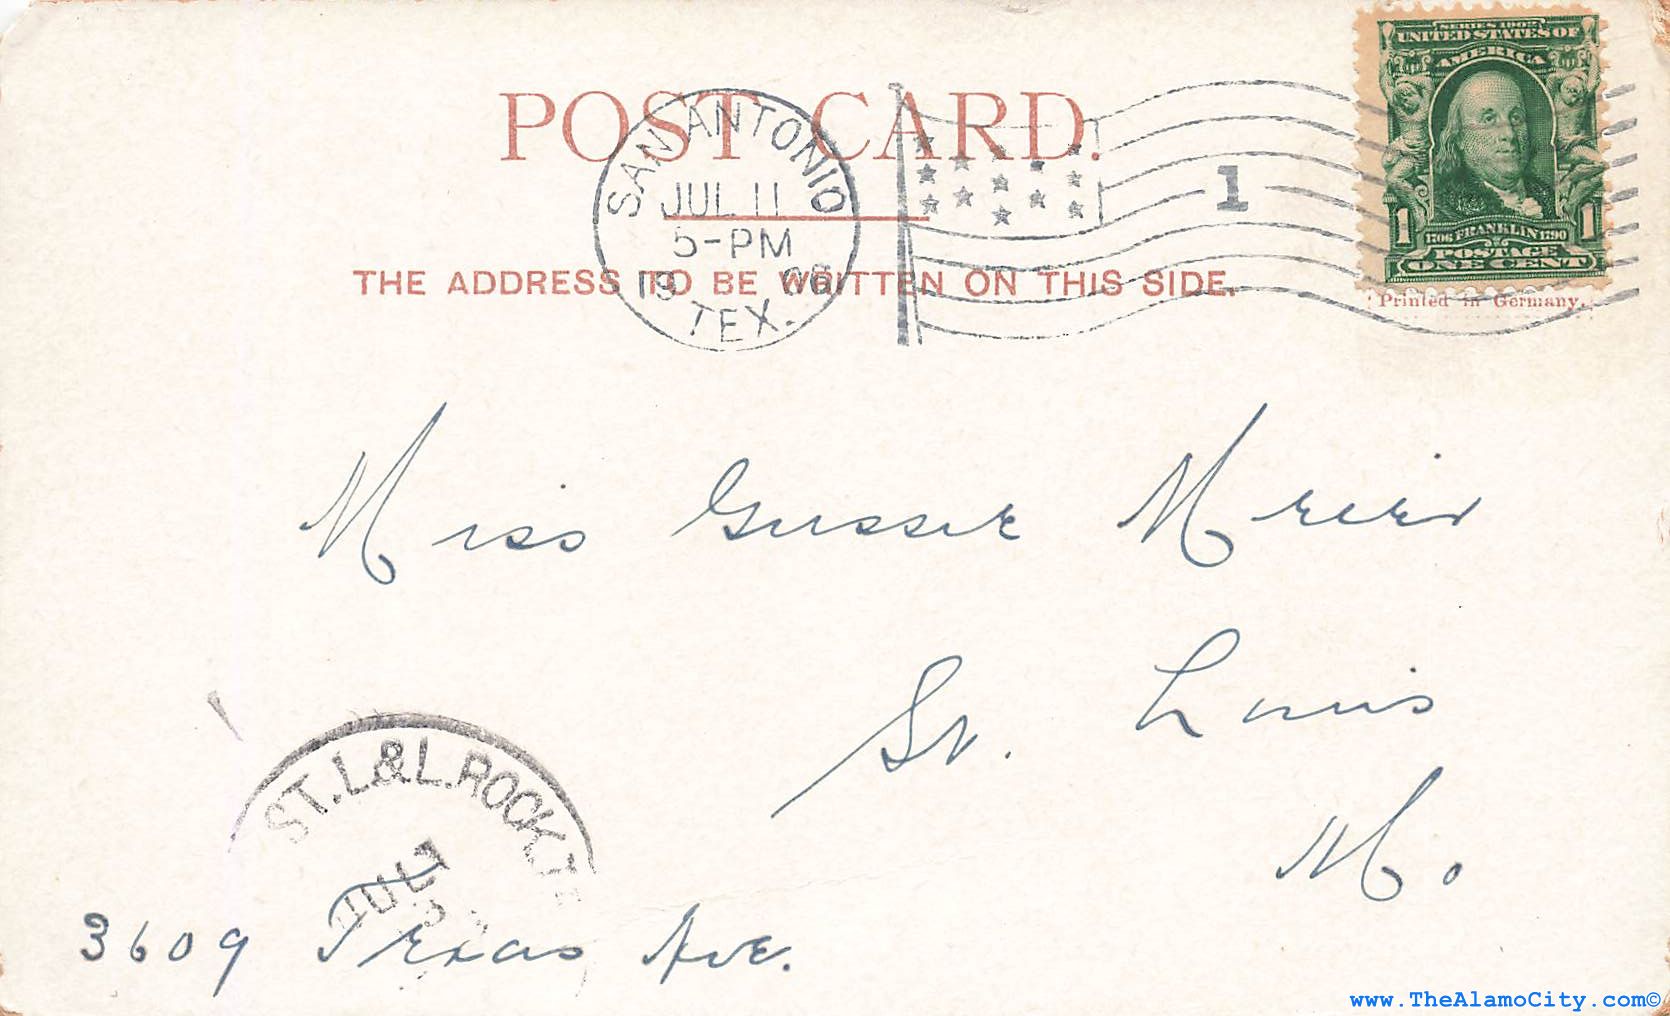 SERIES 1902
UNITED STATES OF
AMERICA
POST CARD.
SAN ANTONIO
JUL 11
5-PM
19 06
TEX.
1
1 1
1706 FRANKLIN 1790
POSTAGE
ONE CENT
THE ADDRESS TO BE WRITTEN ON THIS SIDE.
Printed in Germany.
Miss Gussie Meier
St. Louis
Mo.
ST. L. & L. ROCK.
JUL
3609 Texas Ave.
www.TheAlamoCity.com©